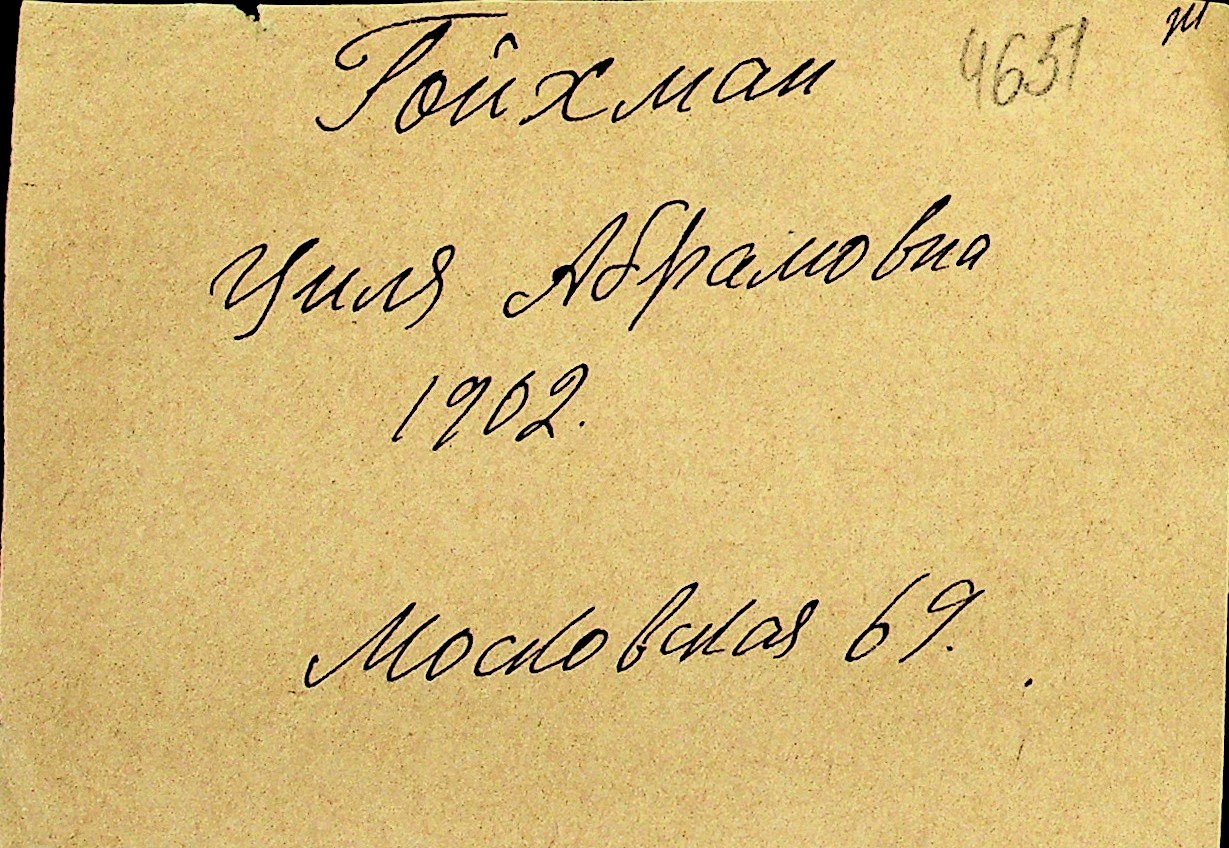 Гойхман 4651
Циля Абрамовна
1902.
Московская 69.